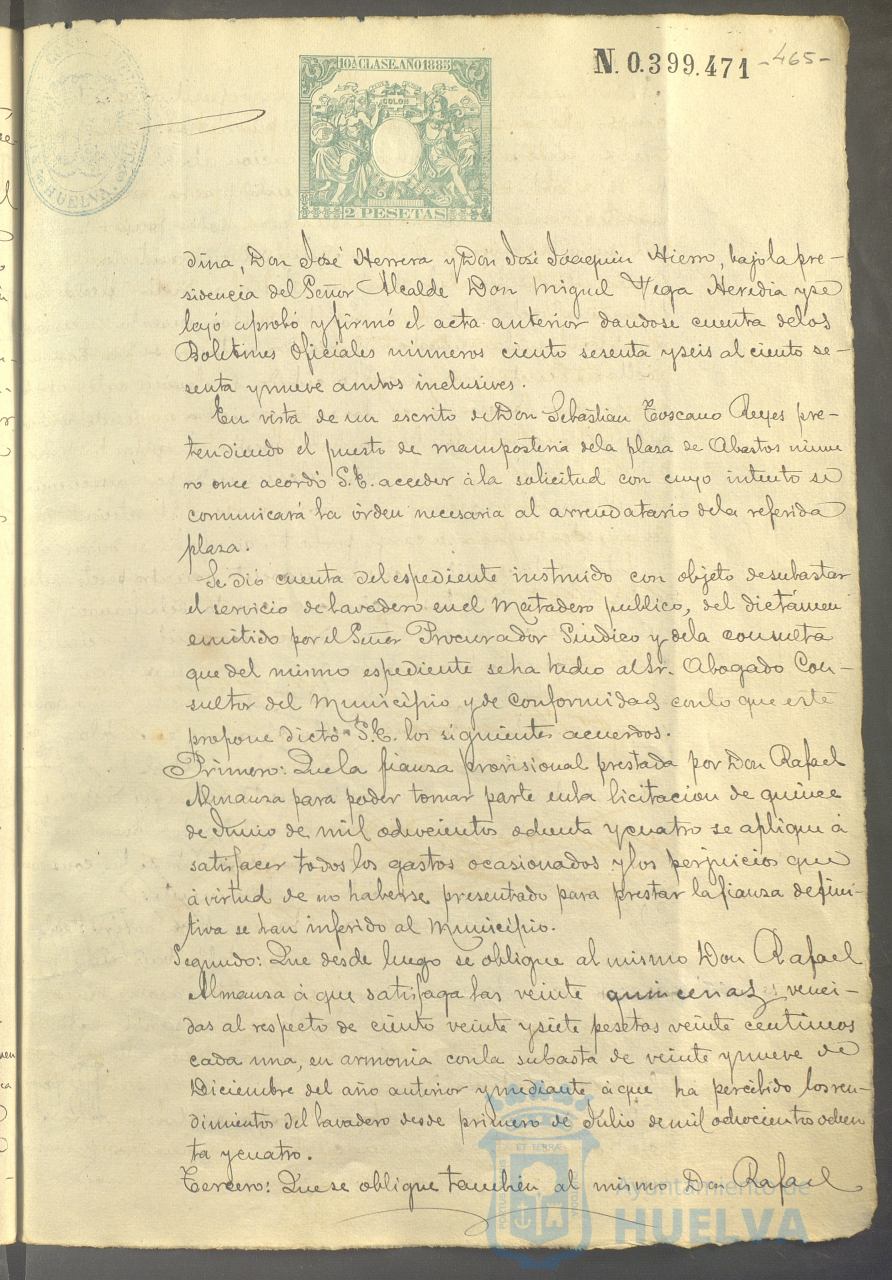 10ª CLASE. AÑO 1885
COLON
2 PESETAS
N. 0.399.471
-465-
HUELVA
dina, Don José Herrera y Don José Joaquin Hierro, bajo la pre-
sidencia del Señor Alcalde Don Miguel Vega Heredia y se
leyó aprobó y firmó el acta anterior dandose cuenta de los
Boletines Oficiales números ciento sesenta y seis al ciento se-
senta y nueve ambos inclusives.
En vista de un escrito de Don Sebastian Toscano Reyes pre-
tendiendo el puesto de mamposteria de la plaza de Abastos núme
ro once acordó S.E. acceder á la solicitud con cuyo intento se
comunicará la órden necesaria al arrendatario de la referida
plaza.
Se dió cuenta del espediente instruido con objeto de subastar
el servicio de lavadero en el Matadero publico, del dictámen
emitido por el Señor Procurador Sindico y de la consulta
que del mismo espediente se ha hecho al Sr. Abogado Con-
sultor del Municipio y de conformidad con lo que este
propone dictó S.E. los siguientes acuerdos.
Primero: Que la fianza provisional prestada por Don Rafael
Almansa para poder tomar parte en la licitacion de quince
de Junio de mil ochocientos ochenta y cuatro se aplique á
satisfacer todos los gastos ocasionados y los perjuicios que
á virtud de no haberse presentado para prestar la fianza defini-
tiva se han inferido al Municipio.
Segundo: Que desde luego se obligue al mismo Don Rafael
Almansa á que satisfaga las veinte quincenas venci-
das al respecto de ciento veinte y siete pesetas veinte centimos
cada una, en armonia con la subasta de veinte y nueve de
Diciembre del año anterior y mediante á que ha percibido los ren-
dimientos del lavadero desde primero de Julio de mil ochocientos ochen
ta y cuatro.
Tercero: Que se obligue tambien al mismo Don Rafael
Ayuntamiento de
HUELVA